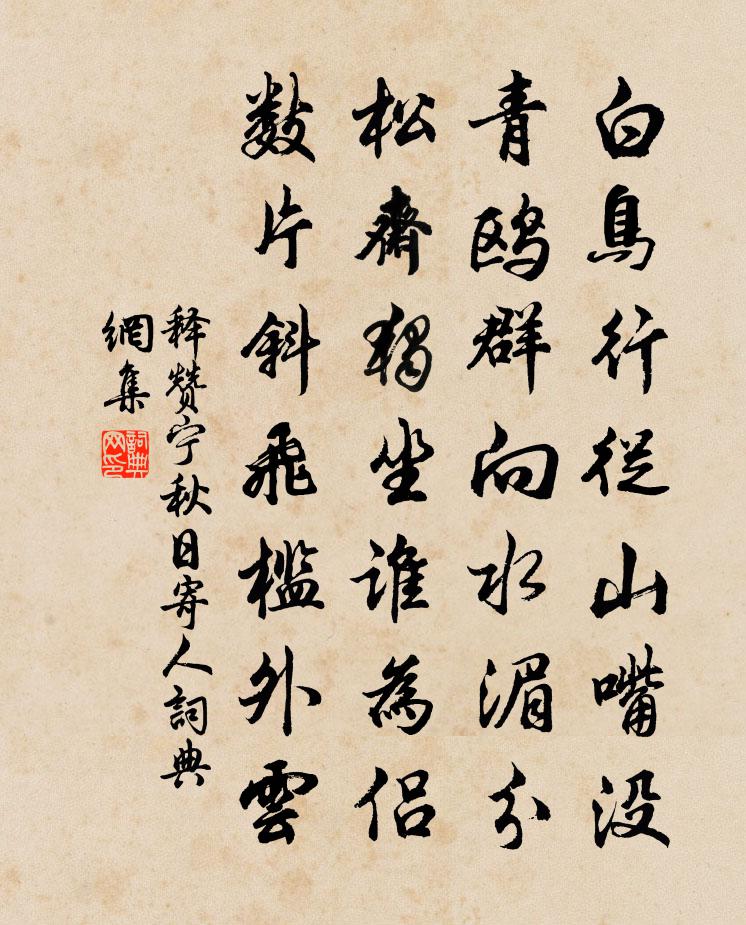 白鳥行從山嘴没
青鸥群向水湄分
松齋獨坐誰為侣
数片斜飛檻外雲
释赞宁秋日寄人詞典
網集
詞典网印